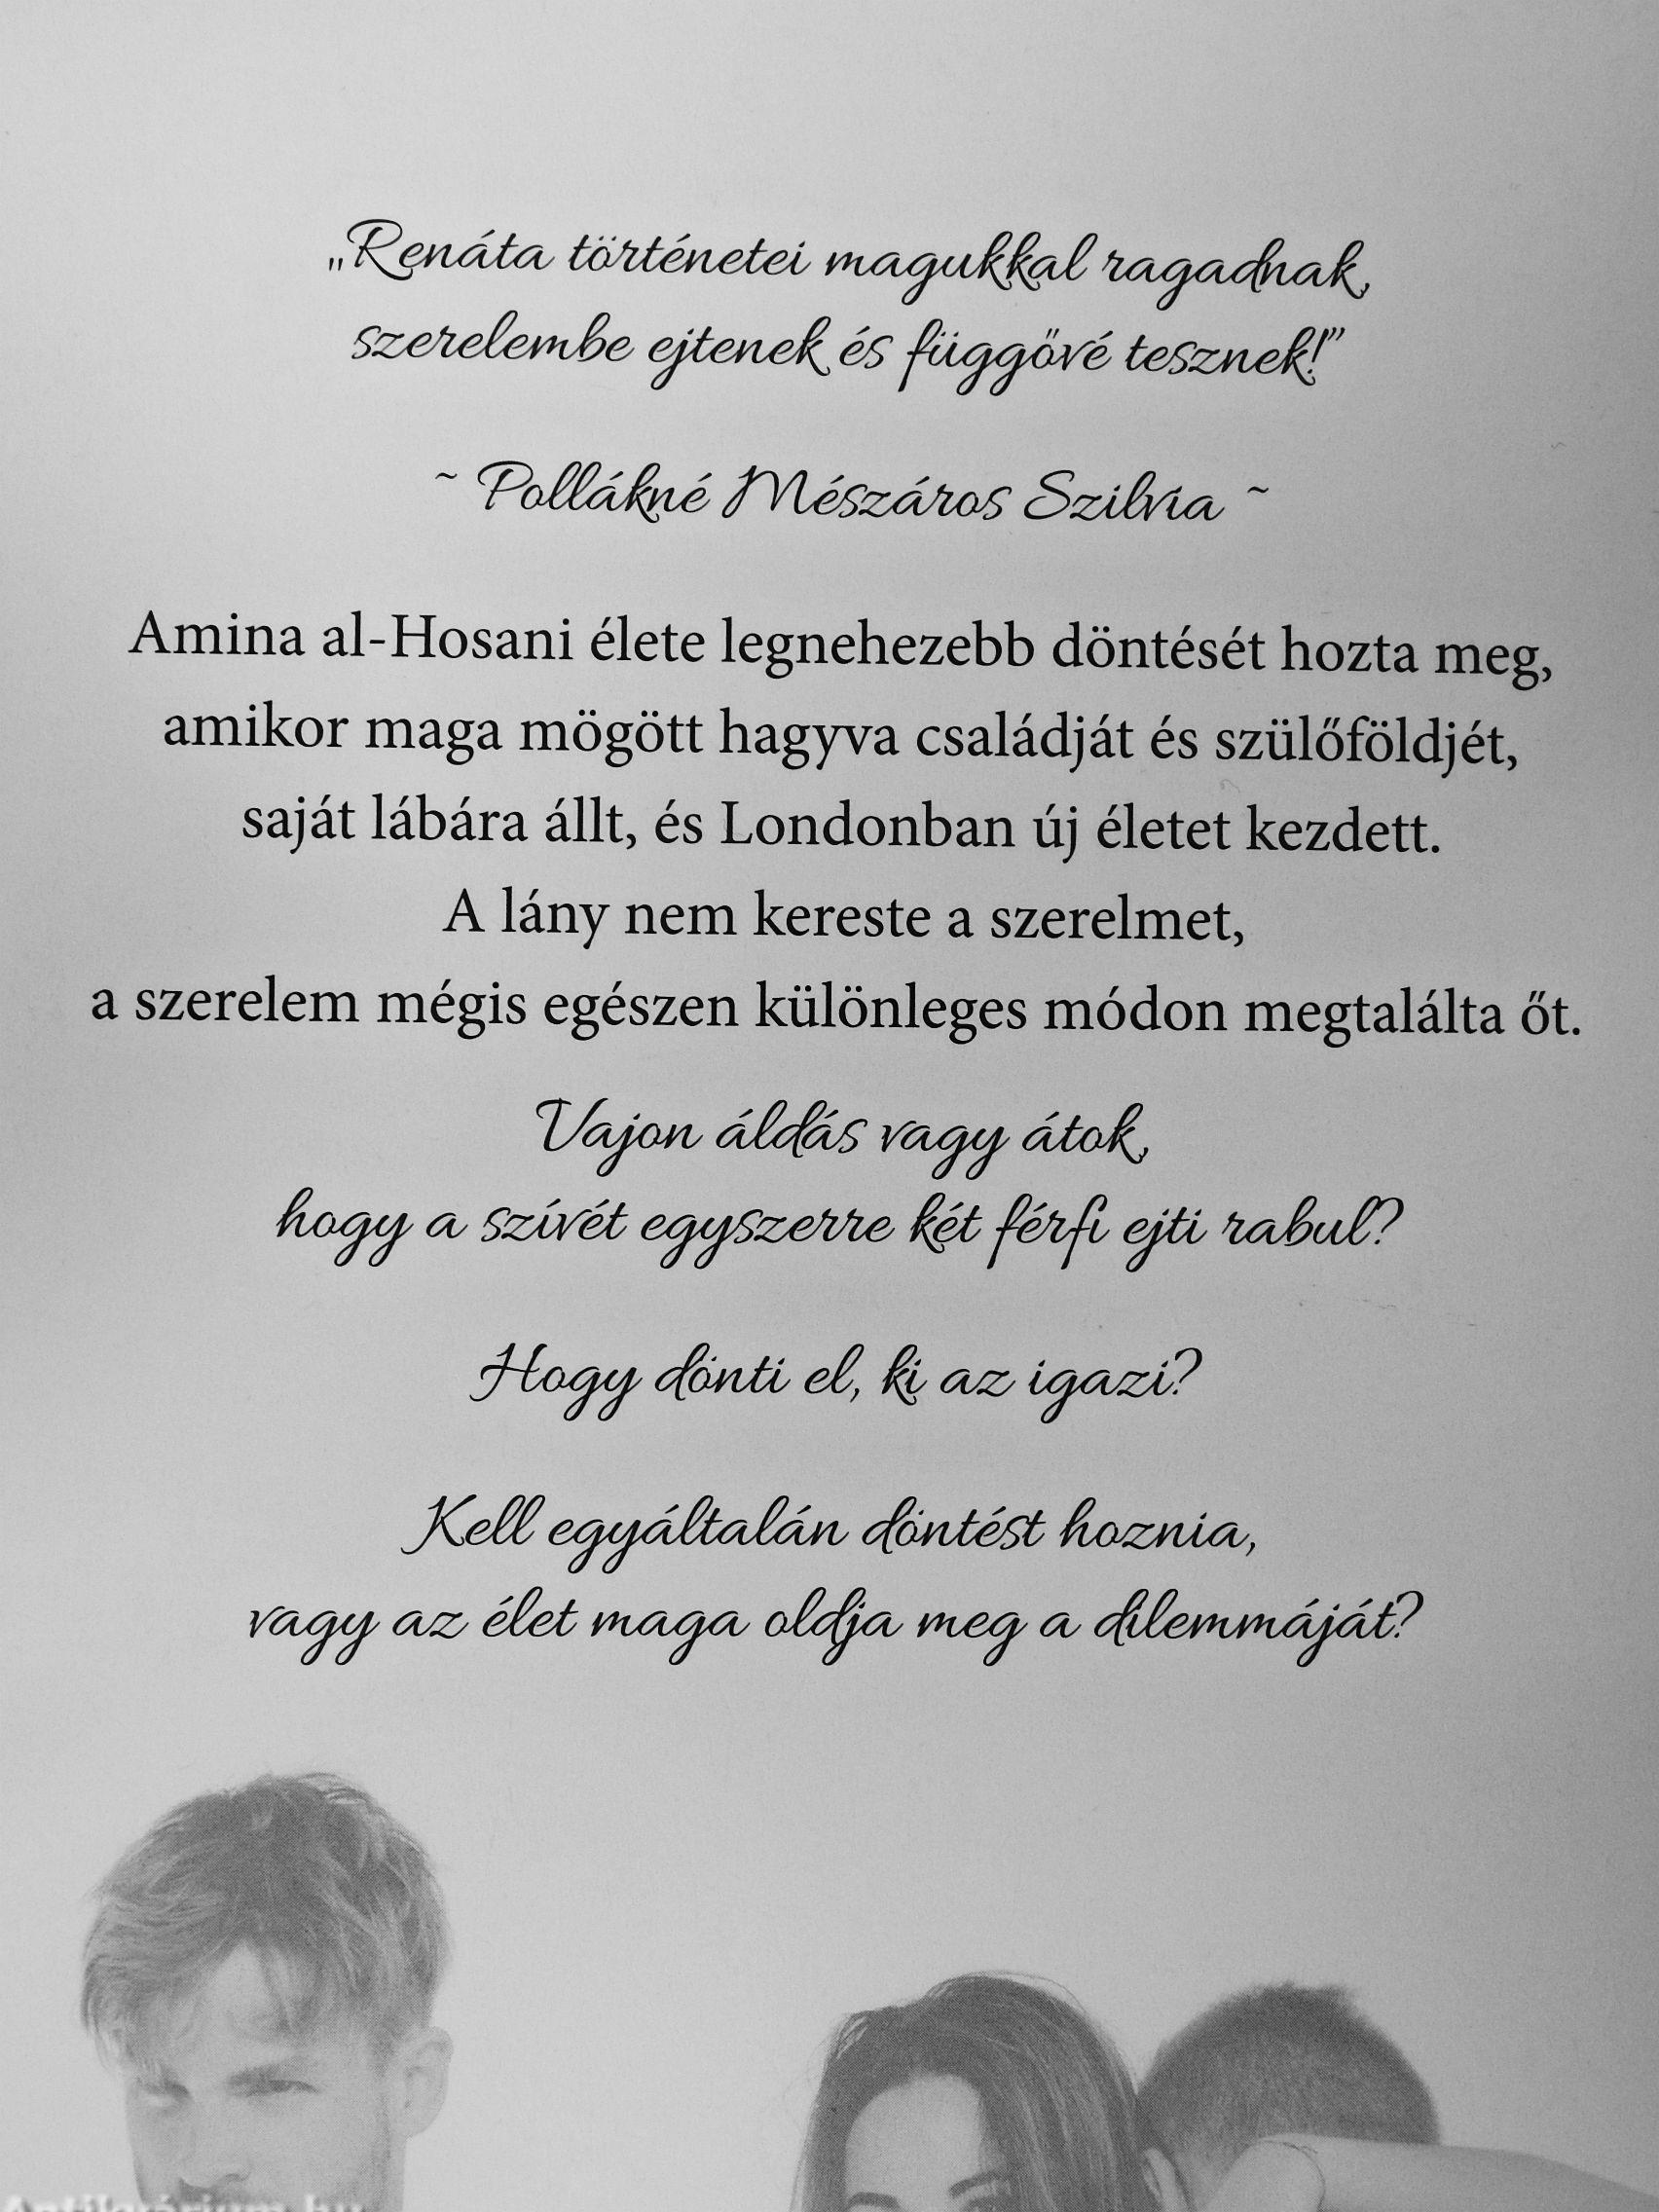 „Renáta történetei magukkal ragadnak,
szerelembe ejtenek és függővé tesznek!”
~ Pollákné Mészáros Szilvia ~
Amina al-Hosani élete legnehezebb döntését hozta meg,
amikor maga mögött hagyva családját és szülőföldjét,
saját lábára állt, és Londonban új életet kezdett.
A lány nem kereste a szerelmet,
a szerelem mégis egészen különleges módon megtalálta őt.
Vajon áldás vagy átok,
hogy a szívét egyszerre két férfi ejti rabul?
Hogy dönti el, ki az igazi?
Kell egyáltalán döntést hoznia,
vagy az élet maga oldja meg a dilemmáját?
Antikvárium.hu